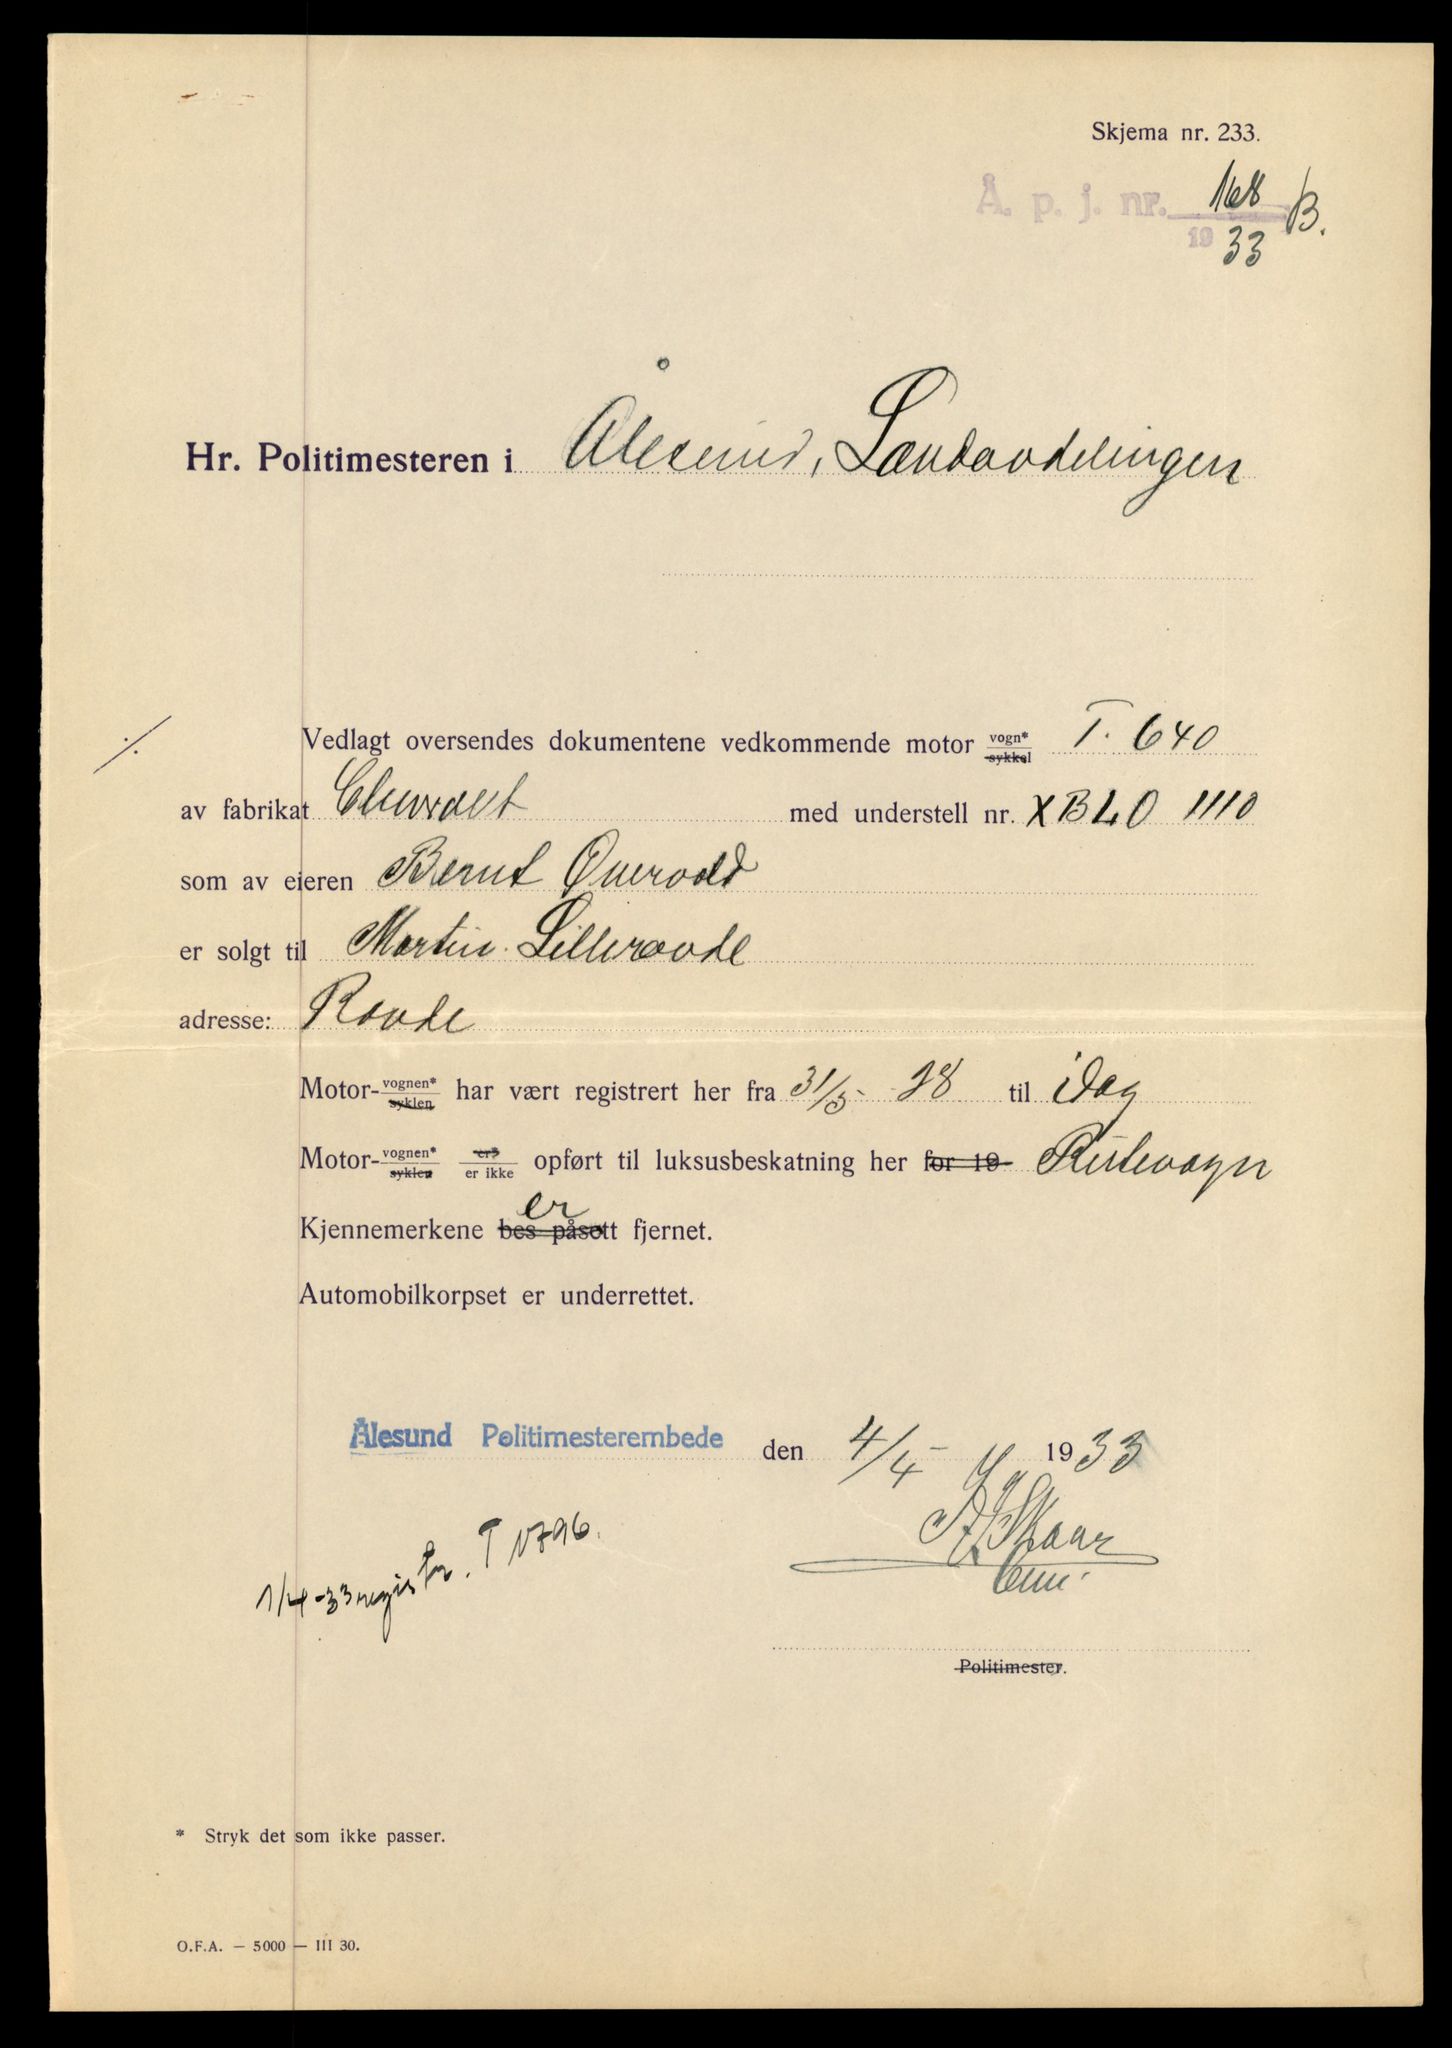 Skjema nr. 233.
Å. p. j. nr. 168 B.
19 33
Hr. Politimesteren i Ålesund, Landavdelingen
./.
Vedlagt oversendes dokumentene vedkommende motor vogn* sykkel T. 640
av fabrikat Chevrolet med understell nr. XBLO 1110
som av eieren Bernt Overvold
er solgt til Martin Lillerovde
adresse: Rovde
Motor-vognen* syklen har vært registrert her fra 31/5-28 til idag
Motor-vognen* syklen er* er ikke opført til luksusbeskatning her for 19 Rutevogn
er
Kjennemerkene bes påsett fjernet.
Automobilkorpset er underrettet.
Ålesund Politimesterembede den 4/4 1933
Skaar
1/4-33 registr. T 1796.
Politimester.
* Stryk det som ikke passer.
O.F.A. — 5000 — III 30.